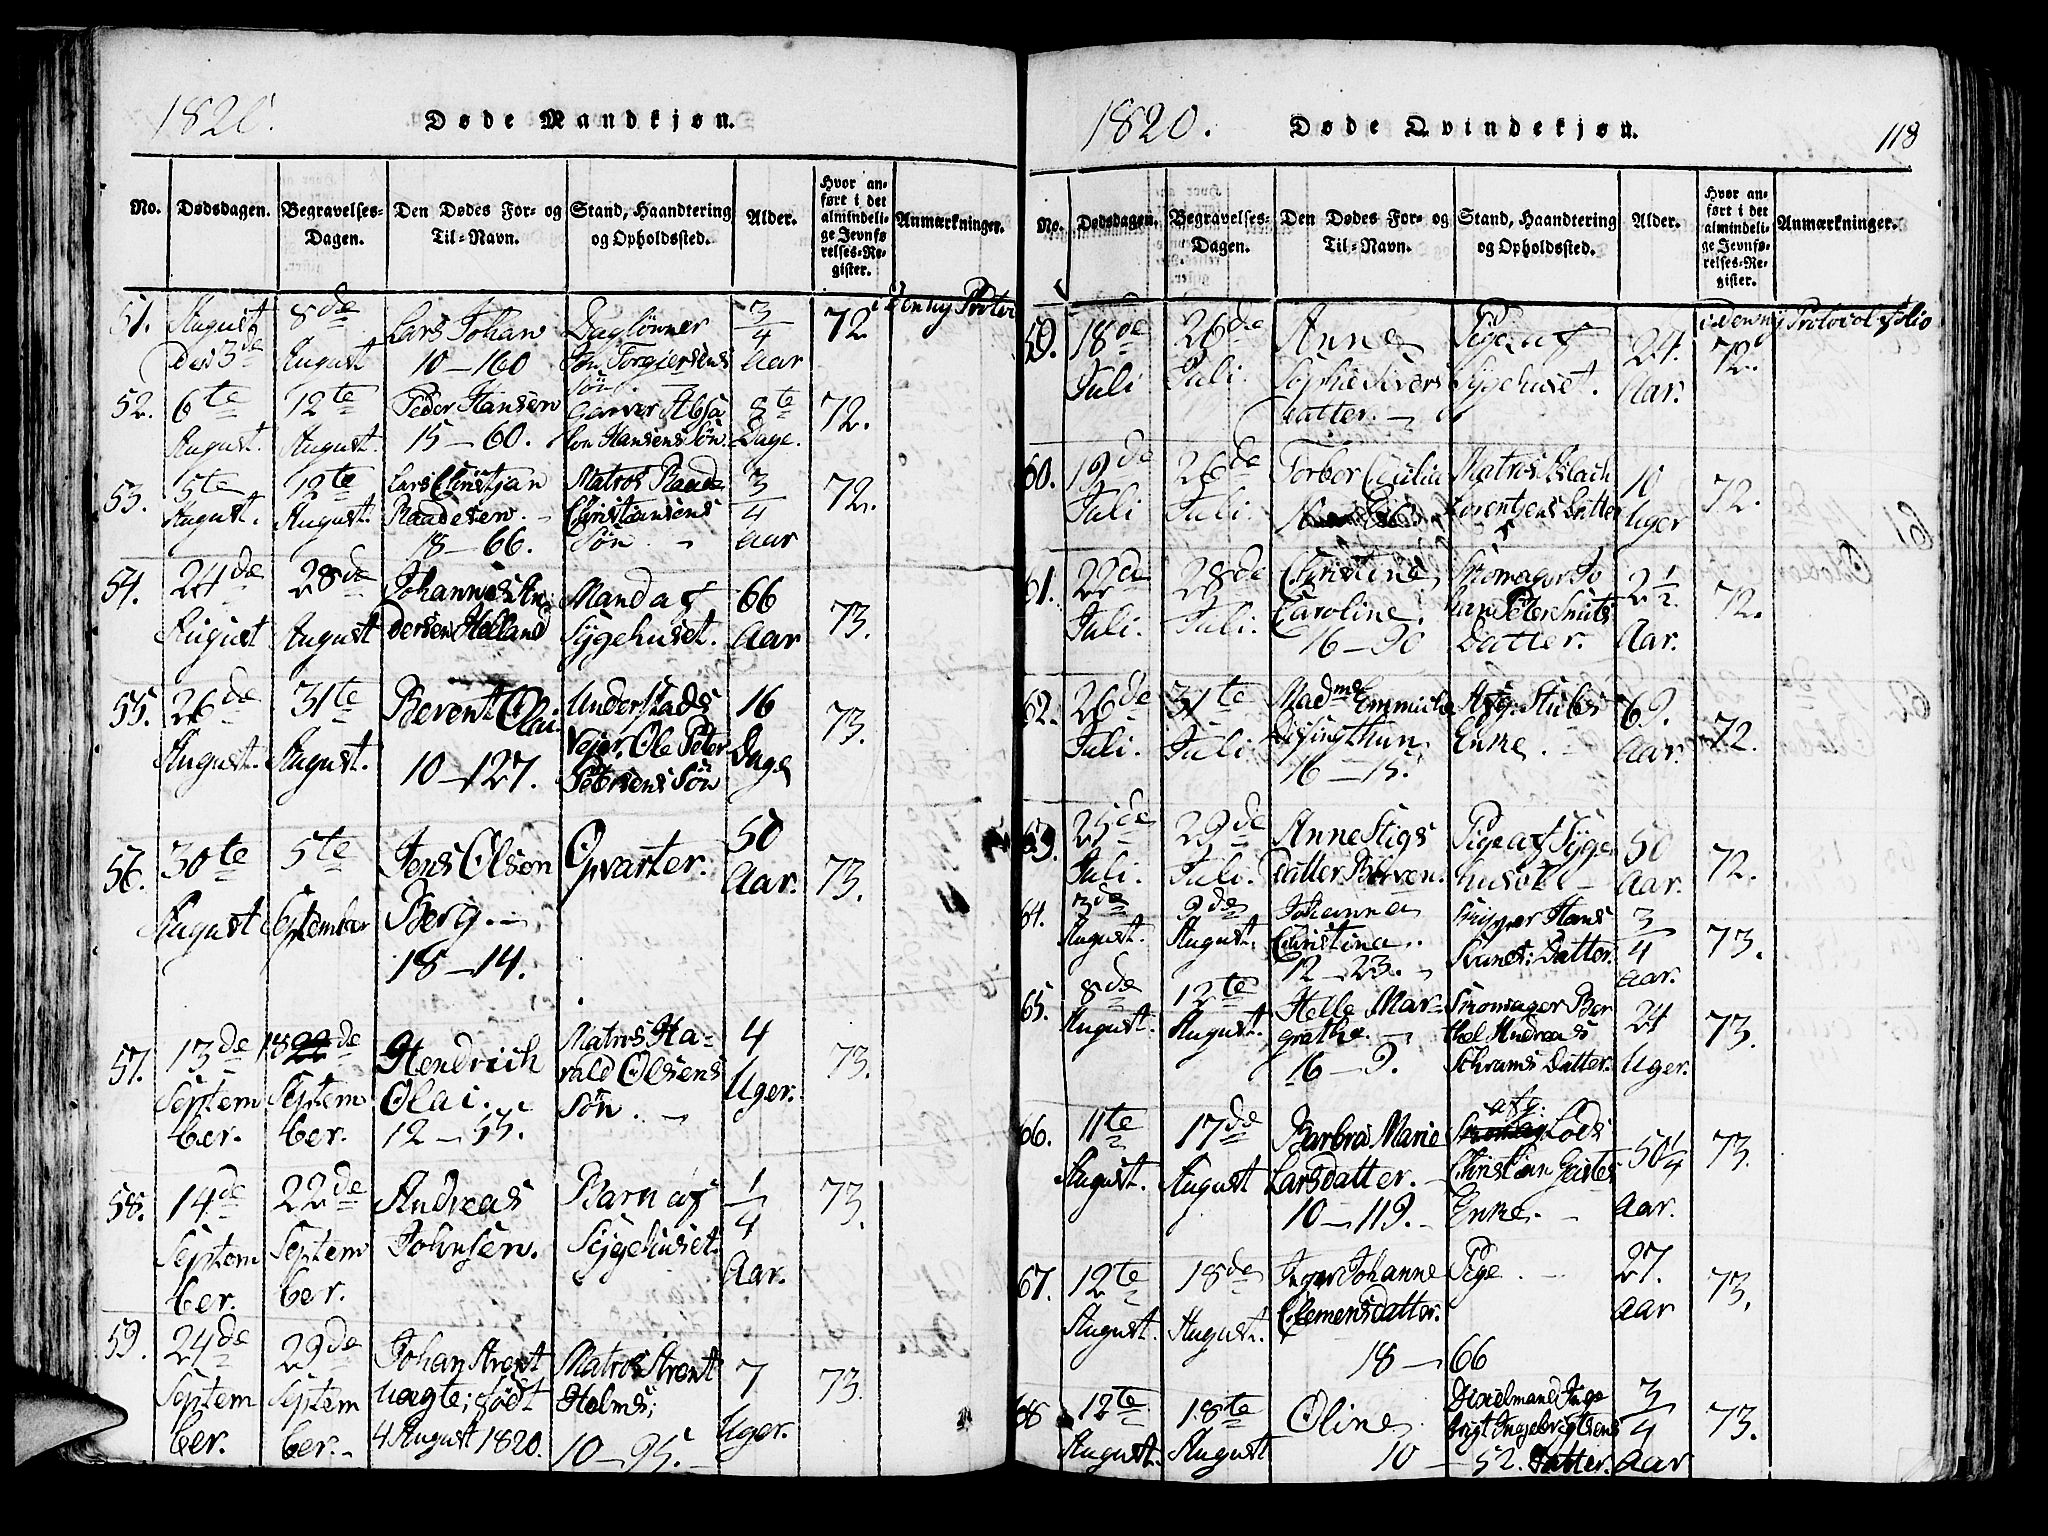 1820.
Døde Mandkjøn.
No.
Dødsdagen.
Begravelses-
Dagen.
Den Dødes For- og
Til-Navn.
Stand, Haandtering
og Opholdssted.
Alder.
Hvor an-
ført i det
almindeli-
ge Jevnfø
relses-Re-
gister.
Anmærkninger.
51.
August
den 3de
8de
August
Lars Johan
10 — 160
Daglønner
Torgiersens
Søn.
3/4
Aar
72
52.
6te
August.
12te
August.
Peder Hansen
15 — 60.
Garver Absa
lon Hansens Søn.
8te
Dage.
72.
53.
5te
August.
12te
August.
Lars Christjan
Raadesen.
18 — 66.
Matros Raade
Christiansens
Søn.
3/4
Aar
72.
54.
24de
August
28de
August
Johannes An-
dersen Helland
Mand af
Sygehuset.
66
Aar
73.
55.
26de
August.
31te
August.
Berent Olai.
10 — 127.
Understads
Vejer Ole Peter
Petersens Søn
16
Dage
73.
56.
30te
August
5te
September
Jens Olsen
Berg.
18 — 14.
Qvarter.
50
Aar.
73.
57.
13de
Septem
ber.
18de
Septem
ber.
Hendrich
Olai.
12 — 55.
Matros Ha-
rald Olsens
Søn.
4
Uger.
73.
58.
14de
Septem
ber.
22de
Septem
ber.
Andreas
Johnsen.
Barn af
Sygehuset.
1/4
Aar.
73.
59.
24de
Septem
ber.
29de
Septem
ber.
Johan Arent
uægte; født
4 August 1820.
Matros Arent
Holms;
10 — 95.
7
Uger.
73.
1820.
Døde Qvindekjøn.
118
No.
Dødsdagen.
Begravelses-
Dagen.
Den Dødes For- og
Til-Navn.
Stand, Haandtering
og Opholdssted.
Alder.
Hvor an-
ført i det
almindeli-
ge Jevnfø-
relses-Re-
gister.
Anmærkninger.
i den ny Protocol folio
59.
18de
Juli
26de
Juli.
Anne
Sophie Sivers
Datter.
Pige af
Sygehuset.
24.
Aar.
72.
60.
19de
Juli
26de
Juli.
Torbor Cicilia
Matros Aslach
Lorentzens Datter
10
Uger
72.
61.
22de
Juli.
28de
Juli.
Christine
Caroline.
16 — 90
Skomager Jo
han Peter
Datter.
2 1/2
Aar.
72.
62.
26de
Juli.
31te
Juli.
Madme Emmiche
16 — 15.
Afg:
Enke.
69.
Aar.
72.
63.
25de
Juli.
29de
Juli.
Anne Stigs
Datter
Pige af Syge
huset
50
Aar.
72.
64.
3de
August.
9de
August.
Johanna
Christina.
12 — 23.
Skipper Hans
Datter.
3/4
Aar.
73.
65.
8de
August.
12te
August.
Helle Mar-
grethe.
16 — 9.
Skomager Ber
thel Andreas
Schrams Datter.
24
Uger.
73.
66.
11te
August.
17de
August
Barbra Marie
Larsdatter.
10 — 119.
afg:
Lods
Christian
Enke.
50 1/4
Aar.
73.
67.
12te
August.
18de
August.
Inger Johanne
Clemensdatter.
18 — 66
Pige.
27.
Aar
73.
68
12te
August.
18te
August
Oline
10 — 52.
Inge
brigt Ingebrigtsens
Datter.
3/4
Aar
73.